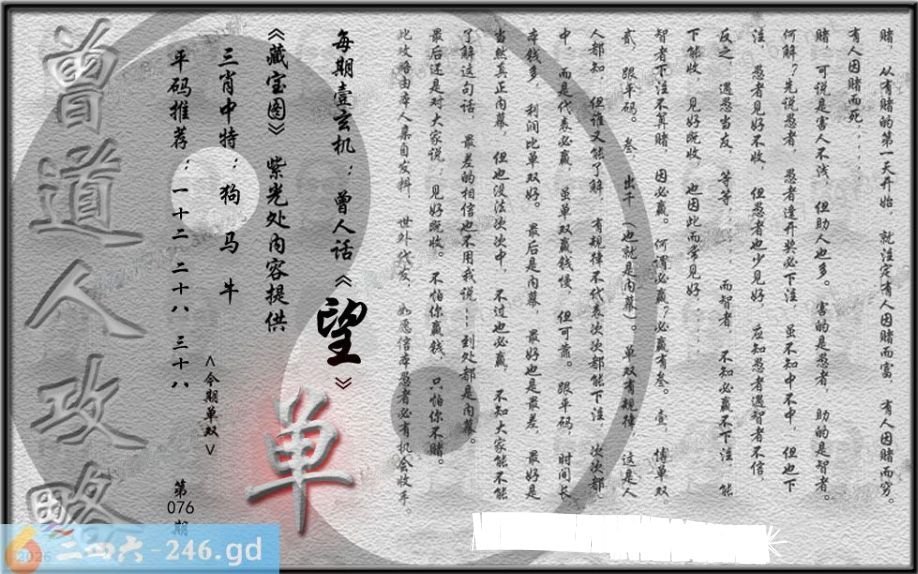 赌，从有赌的第一天开始，就注定有人因赌而富，有人因赌而穷。
有人因赌而死……
赌，可说是害人不浅，但助人也多。害的是愚者，助的是智者。
何解？先说愚者，愚者逢开奖必下注，虽不知中不中，但也下
注，愚者见好不收，但愚者也少见好，应知愚者遇智者不信，
反之，遇愚当友，等等……而智者，不知必赢不下注，能
下能收，见好既收，也因此而常见好……
智者下注不算赌，因必赢。何谓必赢？必赢有叁。壹，博单双
贰，跟平码。叁，出千（也就是内幕）。单双有规律，这是人
人都知，但谁又能了解，有规律不代表次次都能下注，次次都
中，而是代表必赢，虽单双赢钱慢，但可靠。跟平码，时间长
本钱多，利润比单双好。最后是内幕，最好也是最差，最好是
当然真正内幕，但也没法次次中，不过也必赢，不知大家能不能
了解这句话，最差的相信也不用我说……到处都是内幕。
最后还是对大家说：见好既收。不怕你赢钱，只怕你不赌。
此攻略由本人亲自发料，世外代发，如愿信本愚者必有机会收手。
每期壹玄机：曾人话《望》
《藏宝图》紫光处内容提供
单
三肖中特：狗 马 牛
<今期单双>
平码推荐：一十二 二十八 三十八
第
076
期
曾道人攻略
2026
二四六-246.gd